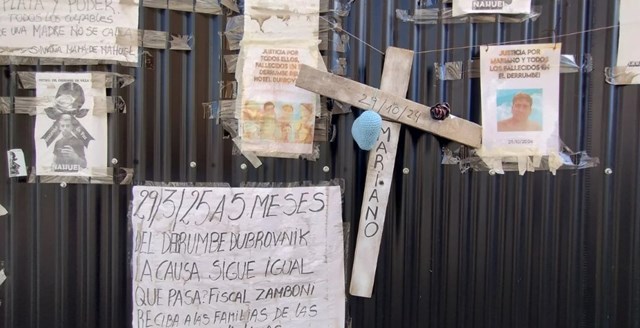 PLATA Y PODER
TODOS LOS CULPABLES
DE UNA MADRE NO SE CAE
SANGRA
NAHUEL
NAHUEL
JUSTICIA POR
TODOS ELLOS,
FALLECIDOS EN EL
DERRUMBE DEL
HOTEL DUBROVNIK
29/10/24
MARIANO
JUSTICIA POR
MARIANO Y TODOS
LOS FALLECIDOS EN
EL DERRUMBE!
29/3/25 A 5 MESES
DEL DERRUMBE DUBROVNIK
LA CAUSA SIGUE IGUAL
QUE PASA? FISCAL ZAMBONI
RECIBA A LAS FAMILIAS DE LAS